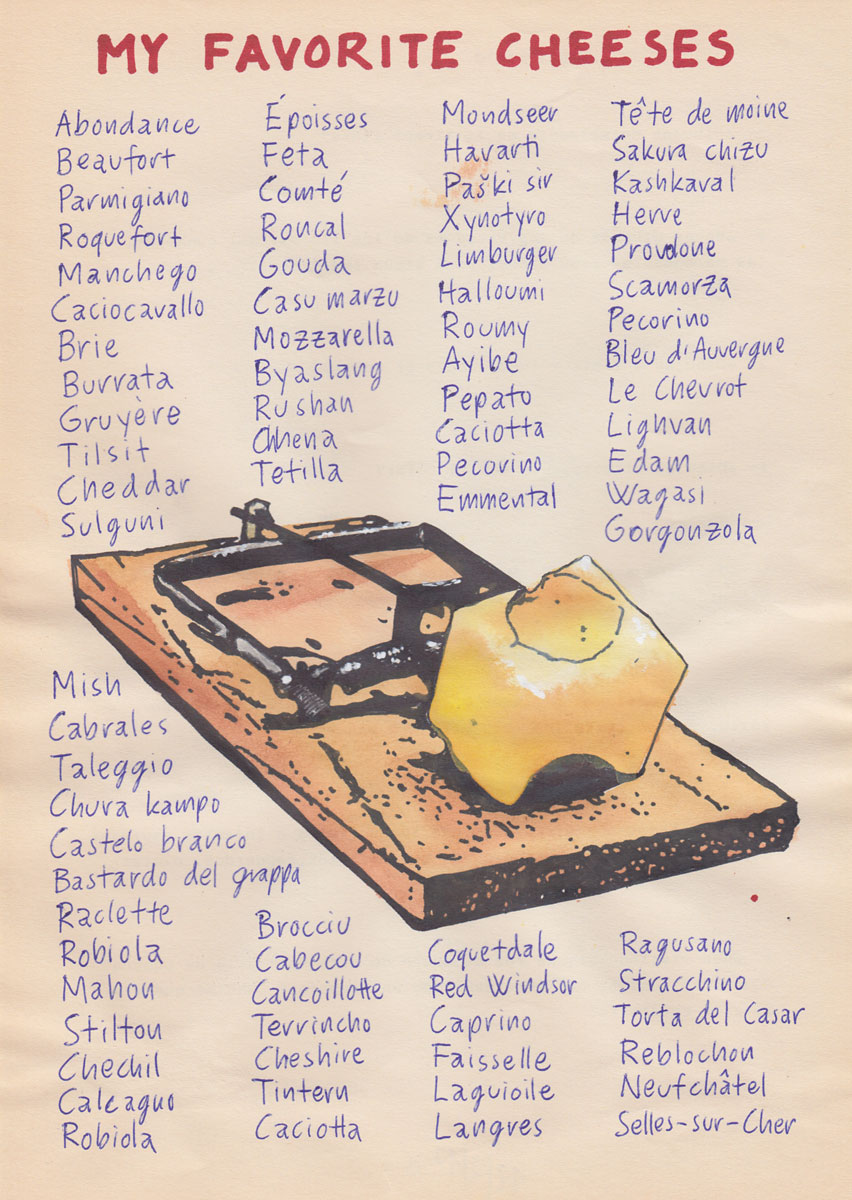 MY FAVORITE CHEESES
Abondance
Beaufort
Parmigiano
Roquefort
Manchego
Caciocavallo
Brie
Burrata
Gruyère
Tilsit
Cheddar
Sulguni
Époisses
Feta
Comté
Roncal
Gouda
Casu marzu
Mozzarella
Byaslang
Rushan
Chhena
Tetilla
Mondseer
Havarti
Paški sir
Xynotyro
Limburger
Halloumi
Roumy
Ayibe
Pepato
Caciotta
Pecorino
Emmental
Tête de moine
Sakura chizu
Kashkaval
Herve
Provolone
Scamorza
Pecorino
Bleu d'Auvergne
Le Chevrot
Lighvan
Edam
Wagasi
Gorgonzola
Mish
Cabrales
Taleggio
Chura kampo
Castelo branco
Bastardo del grappa
Raclette
Robiola
Mahon
Stilton
Chechil
Calcagno
Robiola
Brocciu
Cabecou
Cancoillotte
Terrincho
Cheshire
Tintern
Caciotta
Coquetdale
Red Windsor
Caprino
Faisselle
Laguioile
Langres
Ragusano
Stracchino
Torta del Casar
Reblochon
Neufchâtel
Selles-sur-Cher